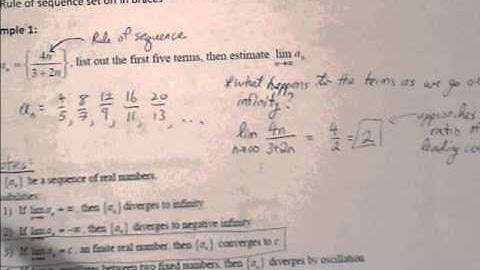 Rule of sequence set off in braces
mple 1:
Rule of sequence
aₙ = {4n / 3 + 2n}, list out the first five terms, then estimate lim n→∞ aₙ
*what happens to the terms as we go
infinity?
aₙ = 4/5, 8/7, 12/9, 16/11, 20/13, ...
lim n→∞ 4n / 3+2n = 4/2 = 2
approaches
ratio
leading
{aₙ} be a sequence of real numbers.
1) If lim aₙ = ∞, then {aₙ} diverges to infinity
2) If lim aₙ = -∞, then {aₙ} diverges to negative infinity
3) If lim aₙ = c, an finite real number, then {aₙ} converges to c
between two fixed numbers, then {aₙ} diverges by oscillation